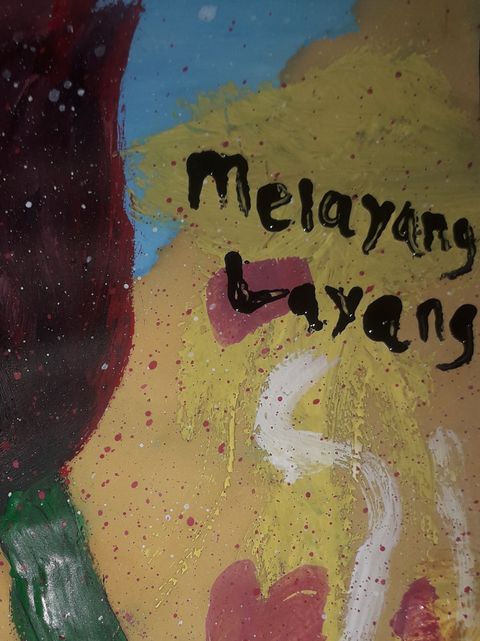 Melayang
Layang